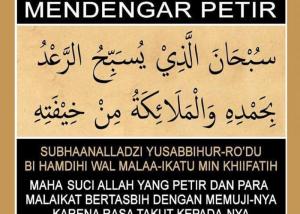 MENDENGAR PETIR
سُبْحَانَ الَّذِيْ يُسَبِّحُ الرَّعْدُ
بِحَمْدِهِ وَالْمَلَائِكَةُ مِنْ خِيْفَتِهِ
SUBHAANALLADZI YUSABBIHUR-RO'DU
BI HAMDIHI WAL MALAA-IKATU MIN KHIIFATIH
MAHA SUCI ALLAH YANG PETIR DAN PARA
MALAIKAT BERTASBIH DENGAN MEMUJI-NYA
KARENA RASA TAKUT KEPADA-NYA